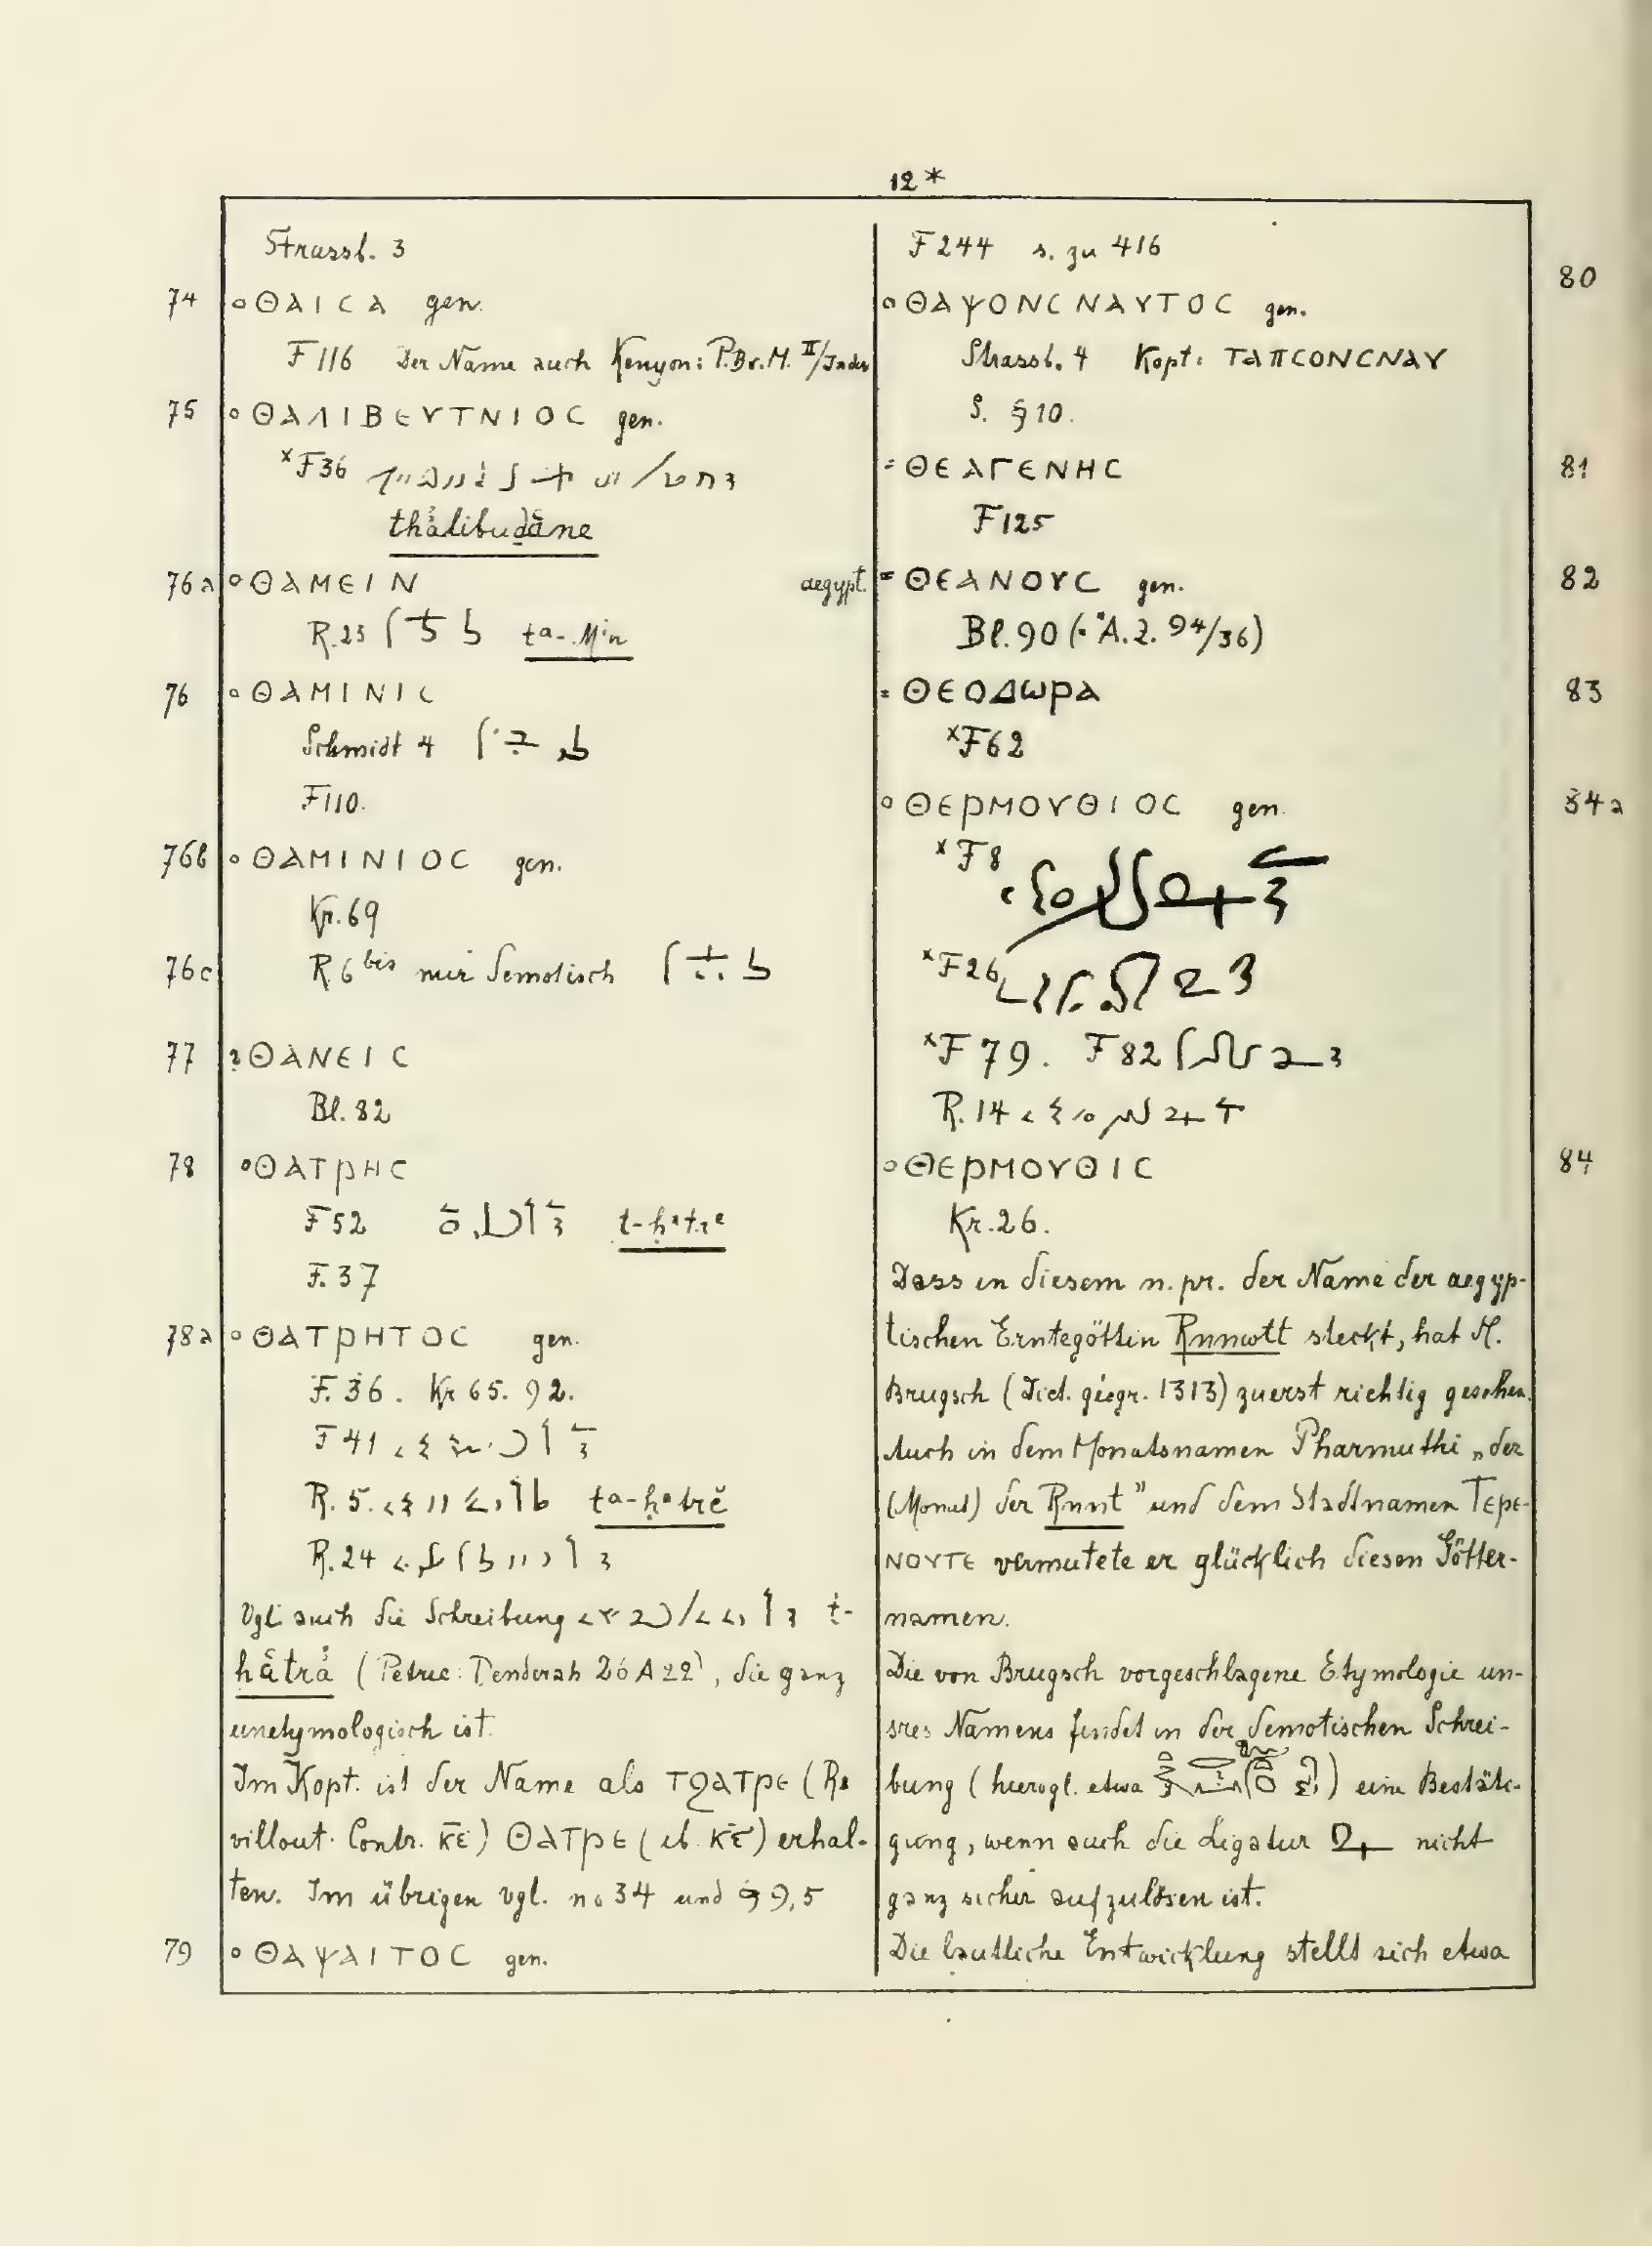 12*
Strassb. 3
74 ∘ΘΑΙCΑ gen.
F 116 Der Name auch Kenyon: P.Br.M. II/Index
75 ∘ΘΑΛΙΒΕΥΤΝΙΟC gen.
×F36
thålibudāne
76a ∘ΘΑΜΕΙΝ
R.23 ta-Min
76 ∘ΘΑΜΙΝΙC
Schmidt 4
F110.
76b ∘ΘΑΜΙΝΙΟC gen.
Kr.69
76c R 6 bis nur Demotisch
77 ?ΘΑΝΕΙC
Bl. 82
78 ∘ΘΑΤΡΗC
F 52 t-ḥatre
F. 37
78a ∘ΘΑΤΡΗΤΟC gen.
F. 36. Kr 65. 92.
F 41
R. 5. ta-ḥatrĕ
R. 24
Vgl auch die Schreibung t-
hȧtrȧ (Petrie: Denderah 26 A 22), die ganz
unetymologisch ist.
Im Kopt. ist der Name als ΤϨΑΤΡΕ (Re
villout Contr. Κ̅Ε̅) ΘΑΤΡΕ (ib Κ̅Ε̅) erhal-
ten. Im übrigen vgl. no 34 und § 9,5
79 ∘ΘΑΨΑΙΤΟC gen.
F 244 s. zu 416
∘ΘΑΨΟΝCΝΑΥΤΟC gen. 80
Strassb. 4 Kopt: ΤΑΠCΟΝCΝΑΥ
S. § 10.
=ΘΕΑΓΕΝΗC 81
F125
aegypt. =ΘΕΑΝΟΥC gen. 82
Bl. 90 (= Ä.Z. 94/36)
=ΘΕΟΔωΡΑ 83
×F62
∘ΘΕΡΜΟΥΘΙΟC gen. 84a
×F8
×F26
×F79. F82
R. 14
∘ΘΕΡΜΟΥΘΙC 84
Kr. 26.
Dass in diesem n.pr. der Name der aegyp-
tischen Erntegöttin Rnnwtt steckt, hat H.
Brugsch (Dict. géogr. 1313) zuerst richtig gesehen.
Auch in dem Monatsnamen Pharmuthi „der
(Monat) der Rnnt" und dem Stadtnamen ΤΕΡΕ-
ΝΟΥΤΕ vermutete er glücklich diesen Götter-
namen.
Die von Brugsch vorgeschlagene Etymologie un-
sres Namens findet in der demotischen Schrei-
bung (hierogl. etwa ) eine Bestäti-
gung, wenn auch die Ligatur nicht
ganz sicher aufzulösen ist.
Die lautliche Entwicklung stellt sich etwa